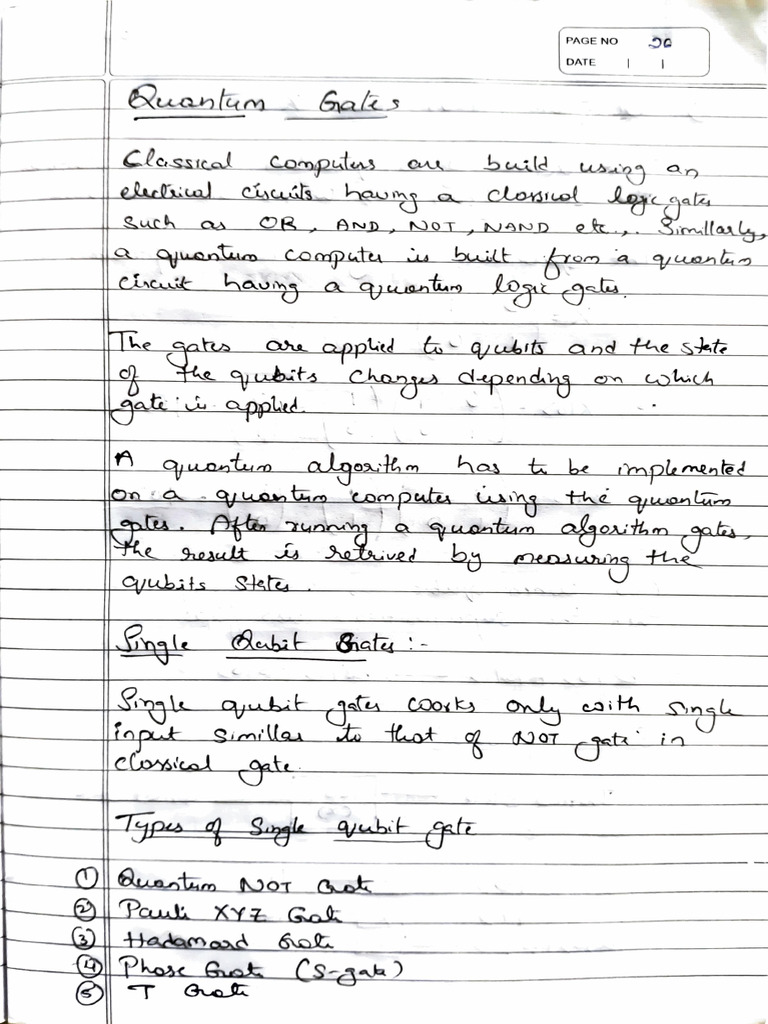 PAGE NO 26
DATE | |
Quantum Gates
Classical computers are build using an
electrical circuits having a classical logic gates
such as OR, AND, NOT, NAND etc.,. Simillarly,
a quantum computer is built from a quantum
circuit having a quantum logic gates.
The gates are applied to qubits and the state
of the qubits changes depending on which
gate is applied.
A quantum algorithm has to be implemented
on a quantum computer using the quantum
gates. After running a quantum algorithm gates,
the result is retrived by measuring the
qubits states.
Single Qubit Gates :-
Single qubit gates works only with single
input simillar to that of NOT gate in
classical gate.
Types of Single qubit gate
① Quantum NOT Gate
② Pauli XYZ Gate
③ Hadamard Gate
④ Phase Gate (S-gate)
⑤ T Gate